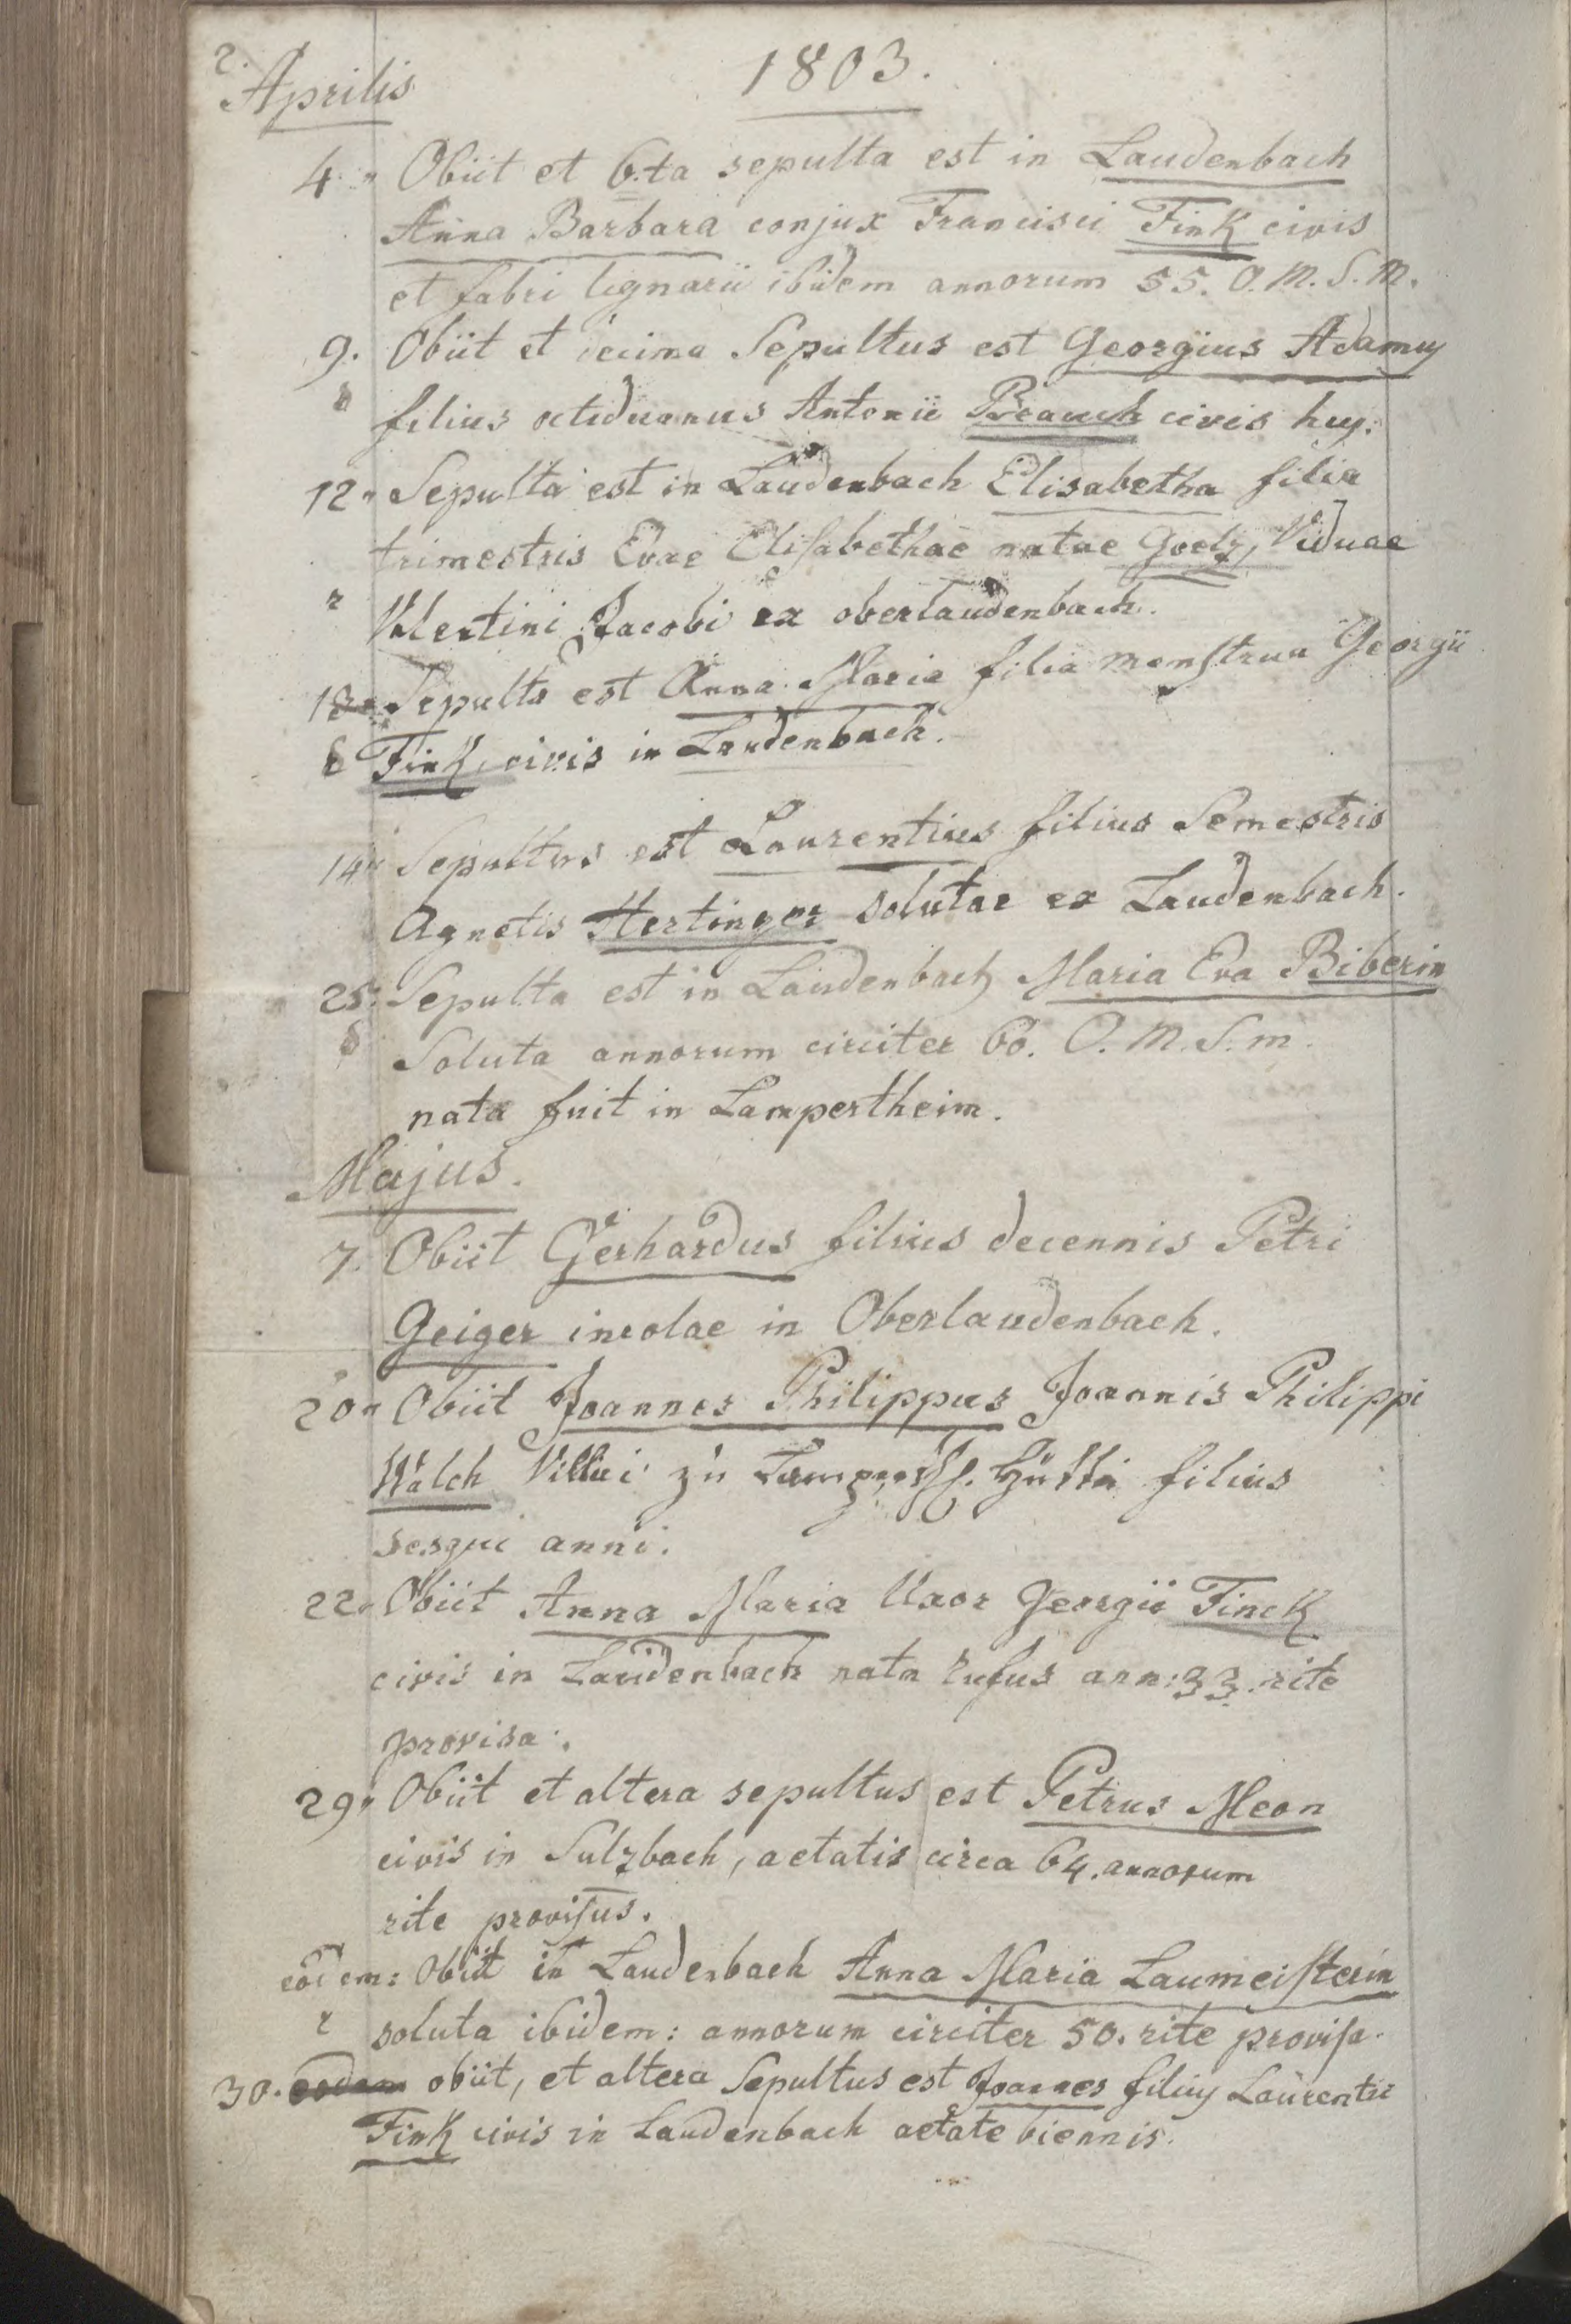 2.
Aprilis
1803.
4. Obiit et 6.ta sepulta est in Laudenbach
Anna Barbara conjux Francisci Fink civis
et fabri lignarii ibidem annorum 55. O. M. S. M.
9. Obiit et Sepultus est Georgius Adamus
filius octiduanus Antonii civis huj:
12. Sepulta est in Laudenbach Elisabetha filia
trimestris Evae Elisabethae natae Goelz, Viduae
Valentini Jacobi ex oberlaudenbach.
13. Sepulta est Anna Maria filia menstrua Georgii
Fink, civis in Laudenbach.
14. Sepultus est Laurentius filius Semestris
Agnetis Hertinger solutae ex Laudenbach.
25. Sepulta est in Laudenbach Maria Eva Biberin
Soluta annorum circiter 60. O. M. S. m.
nata fuit in Lampertheim.
Majus.
7. Obiit Gerhardus filius decennis Petri
Geiger incolae in Oberlaudenbach.
20. Obiit Joannes Philippus Joannis Philippi
Walch Villici zu filius
sesqui anni.
22. Obiit Anna Maria Uxor Georgii Finck
civis in Laudenbach nata ann: 33. rite
provisa.
29. Obiit et altera sepultus est Petrus Meon
civis in Sulzbach, aetatis circa 64. annorum
rite provisus.
eodem: Obiit in Laudenbach Anna Maria Laumeisterin
soluta ibidem: annorum circiter 50. rite provisa.
30. eodem obiit, et altera Sepultus est Joannes filius Laurentii
Fink civis in Laudenbach aetate biennis.